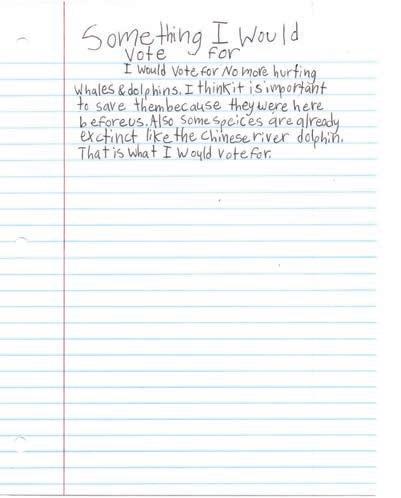 Something I Would
Vote for
I would vote for No more hurting
whales & dolphins. I think it is important
to save them because they were here
before us. Also some speices are already
exctinct like the Chinese river dolphin.
That is what I would vote for.